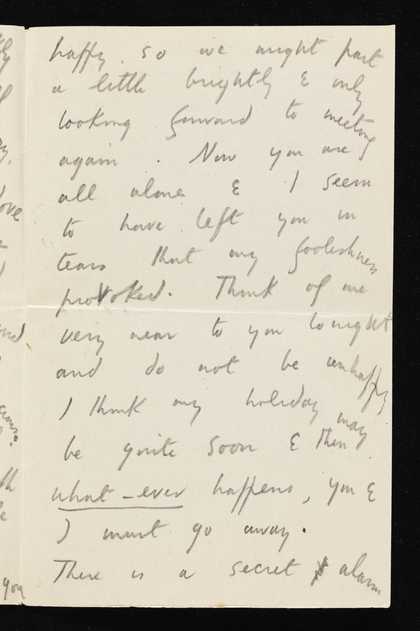 happy so we might part
a little brightly & only
looking forward to meeting
again. Now you are
all alone & I seem
to have left you in
tears that my foolishness
provoked. Think of me
very near to you tonight
and do not be unhappy
I think my holiday may
be quite soon & then
what-ever happens, you &
I must go away.
There is a secret alarm